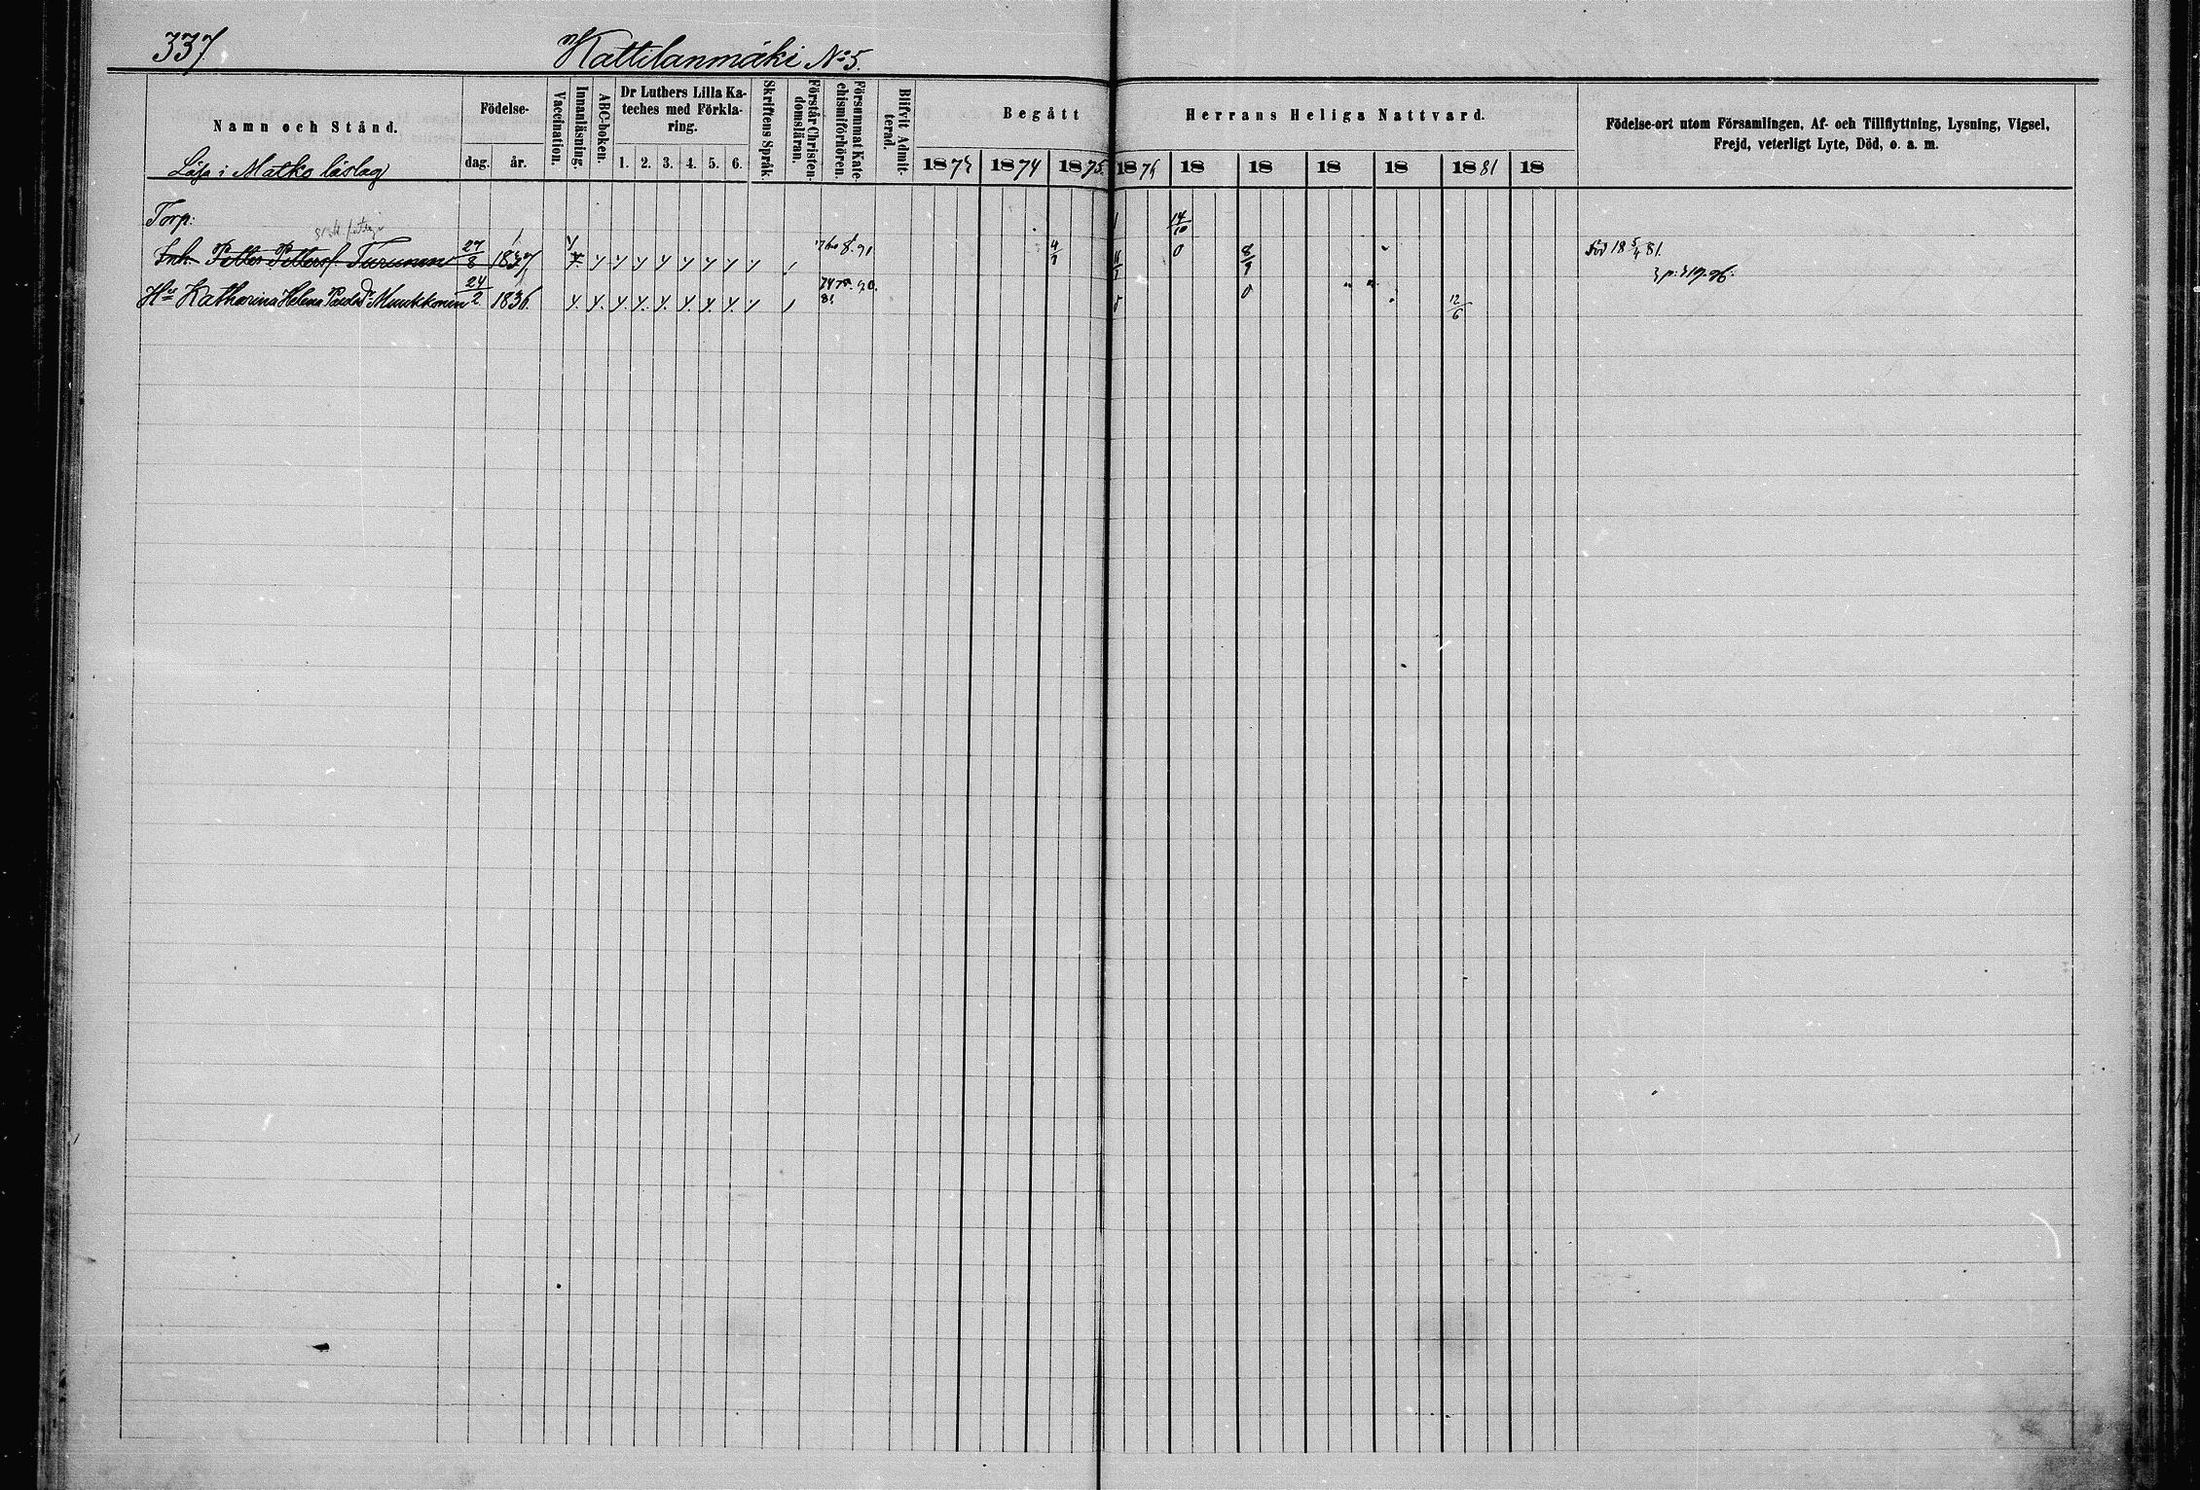 337
Kattilanmäki No 5.
Namn och Stånd.
Födelse-
dag. år.
Vaccination.
Innanläsning.
ABC-boken.
Dr Luthers Lilla Ka-
teches med Förkla-
ring.
1. 2. 3. 4. 5. 6.
Skriftens Språk.
Förstår Christen-
domsläran.
Försummat Kate-
chismiförhören.
Blifvit Admit-
terad.
Begått Herrans Heliga Nattvard.
1873 1874 1875 1876 18 18 18 18 1881 18
Födelse-ort utom Församlingen, Af- och Tillflyttning, Lysning, Vigsel,
Frejd, veterligt Lyte, Död, o. a. m.
Läsa i Matko läslag
Torp: 14/10
Inh. Petter Pettersf. Turunen 27/8 1837 4/7 0 8/9 Död 18 5/4 81.
Hu Katharina Helena Paulsdr Muukkonen 24/2 1836. 81 0 0 12/6